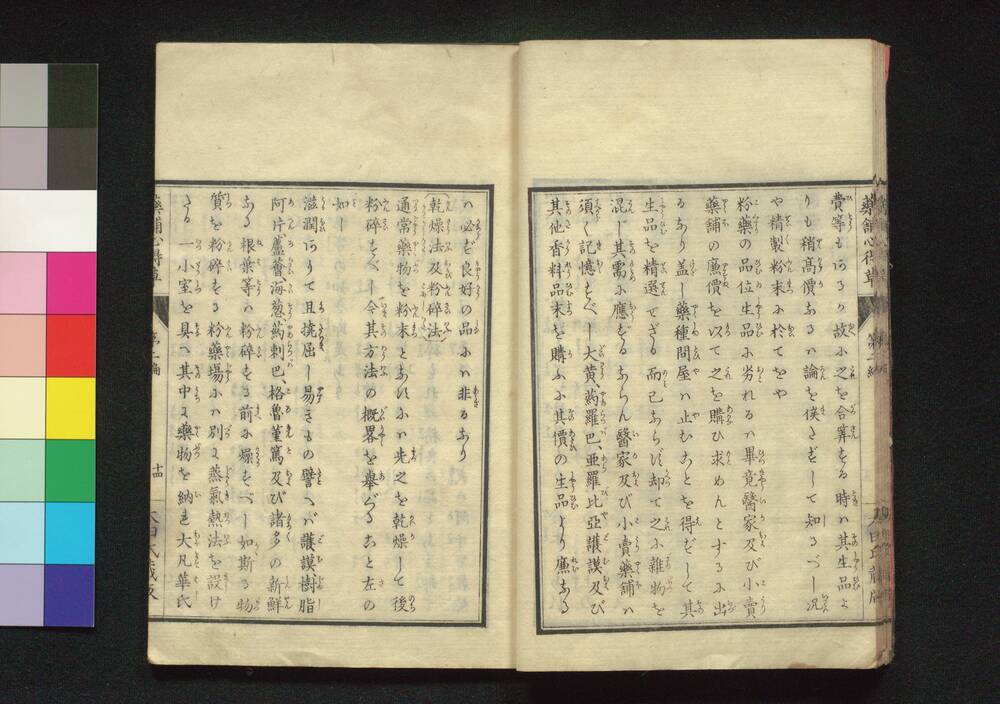 費等もあるが故に之を合算する時は其生品よ
りも稍高價なるは論を俟たずして知るべし况
や精製粉末に於てをや
粉藥の品位生品に劣れるは畢竟醫家及び小賣
藥舗の廉價を以て之を購ひ求めんとするに出
るなり盖し藥種問屋は止むことを得ずして其
生品を精選せざる而已ならず却て之に雜物を
混じ其需に應ずるならん醫家及び小賣藥舗は
須く記憶すべし大黄、葯羅巴、亜羅比亞護謨及び
其他香料品末を購ふに其價の生品より廉なる
は必ず良好の品に非るなり
乾燥法及粉碎法
通常藥物を粉末となすには先之を乾燥して後
粉碎すべし今其方法の概畧を擧ぐること左の
如し
滋潤ありて且撓屈し易きもの譬へば護謨樹脂
阿片、蘆薈、海葱、葯刺巴、格魯菫篤及び諸多の新鮮
なる根葉等は粉碎する前に燥すべし如斯る物
質を粉碎する粉藥場には別に蒸氣熱法を設け
たる一小室を具へ其中に藥物を納れ大凡華氏
藥舗心得草
十四